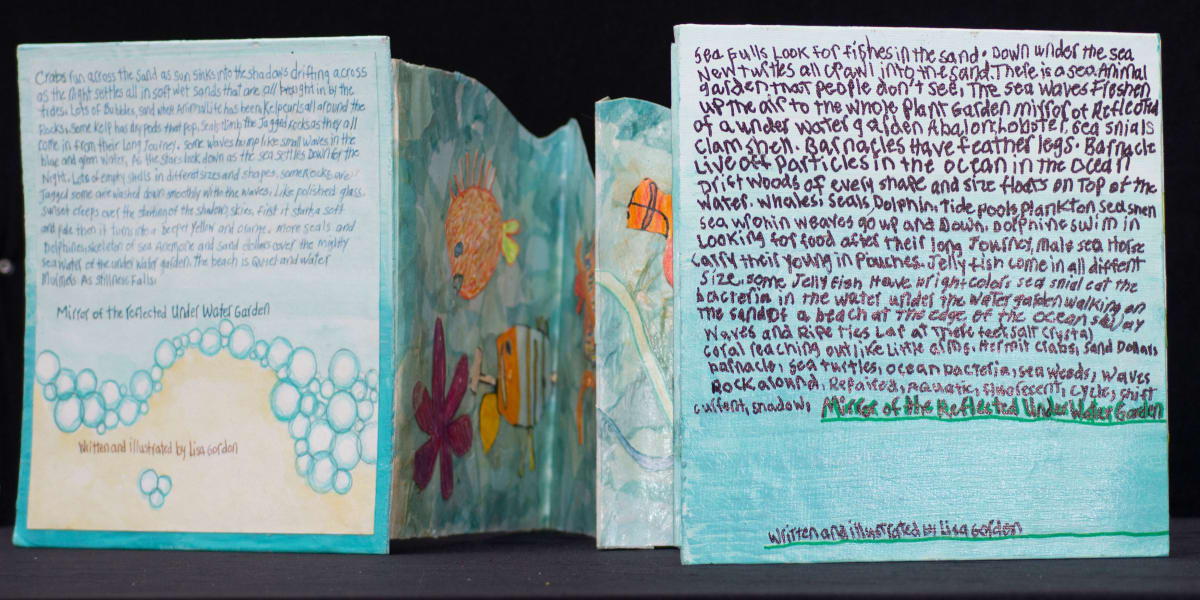 Crabs run across the sand as sun sinks into the shadows drifting across
as the night settles all in soft wet sands that are all brought in by the
tides. Lots of Bubbles, sand where Animal Life has been. Kelp curls all around the
Rocks. Some kelp has dry pods that pop, Seals climb the Jagged rocks as they all
come in from their Long Journey. Some waves hump like small waves in the
blue and green water. As the stars look down as the sea settles Down for the
Night. Lots of empty shells in different sizes and shapes, some Rocks are
Jagged some are washed down smoothly with the waves. Like polished glass.
sunset creeps over the starting of the shadow skies. First it starts a soft
and pale then it turns into a Deeper Yellow and orange. more seals and
Dolphines. skeleton of sea Anemone and sand dollars cover the mighty
sea water of the under water garden. the beach is Quiet and water
As stillness Falls.
Mirror of the reflected Under Water Garden
Written and illustrated by Lisa Gordon
Sea Gulls Look for fishes in the sand. Down under the sea
New turtles all crawl into the sand. There is a sea Animal
garden that people don't see. The sea waves Freshen
up the air to the whole Plant Garden mirror of Reflected
of a under water garden Abalon, Lobster, sea snials
Clam shell. Barnacles Have feather legs. Barnacle
Live off Particles in the ocean in the ocean
Drift Woods of every shape and size floats on Top of the
water. whales, seals Dolphin, Tide pools Plankton sea
sea weaves go up and Down. Dolphins swim in
Looking for food after their long Journey. Male sea Horse
carry their young in Pouches. Jelly fish come in all differnt
Size. some Jelly fish Have bright colors sea snial eat the
bacteria in the water under the water garden walking on
the sand of a beach at the edge of the ocean
waves and Laf at There feet salt crystal
coral reaching out like Little arms. Hermit crabs, Sand Dollars
barnacle, sea turtles, ocean bacteria, sea weeds, waves
Rock Aquatic, cycle,
current, snadow, Mirror of the Reflected Under Water Garden
Written and illustrated by Lisa Gordon